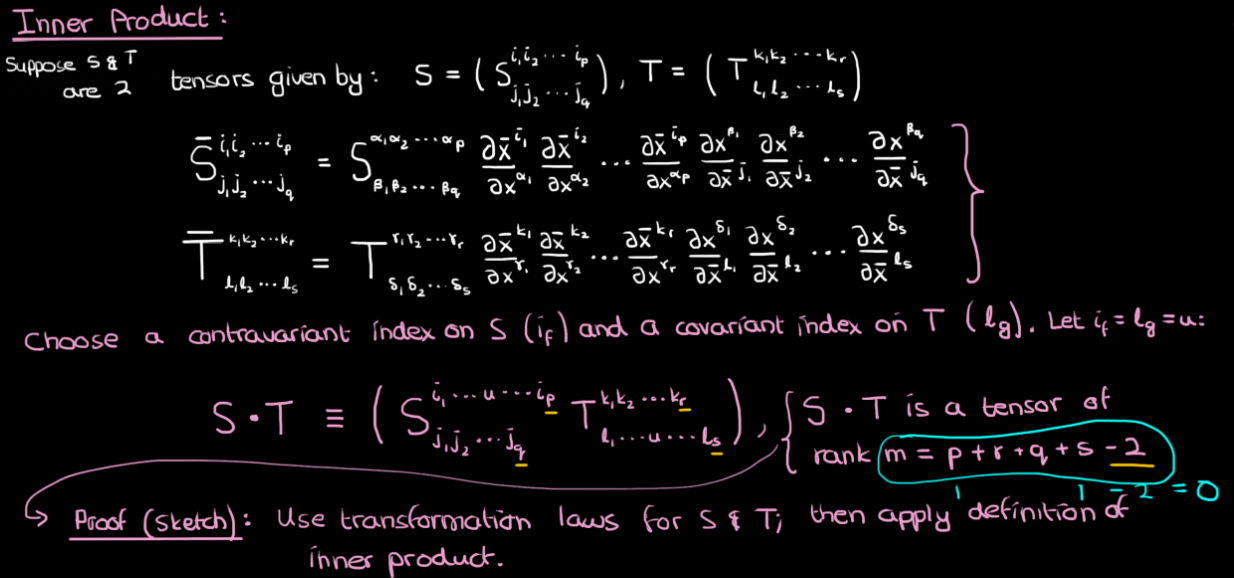 Inner Product:
Suppose S & T are 2 tensors given by: S = (S^{i₁i₂⋯i_p}_{j₁j₂⋯j_q}), T = (T^{k₁k₂⋯k_r}_{l₁l₂⋯l_s})
S̄^{i₁i₂⋯i_p}_{j₁j₂⋯j_q} = S^{α₁α₂⋯α_p}_{β₁β₂⋯β_q} ∂x̄^{i₁}/∂x^{α₁} ∂x̄^{i₂}/∂x^{α₂} ⋯ ∂x̄^{i_p}/∂x^{α_p} ∂x^{β₁}/∂x̄^{j₁} ∂x^{β₂}/∂x̄^{j₂} ⋯ ∂x^{β_q}/∂x̄^{j_q}
T̄^{k₁k₂⋯k_r}_{l₁l₂⋯l_s} = T^{r₁r₂⋯r_r}_{δ₁δ₂⋯δ_s} ∂x̄^{k₁}/∂x^{r₁} ∂x̄^{k₂}/∂x^{r₂} ⋯ ∂x̄^{k_r}/∂x^{r_r} ∂x^{δ₁}/∂x̄^{l₁} ∂x^{δ₂}/∂x̄^{l₂} ⋯ ∂x^{δ_s}/∂x̄^{l_s}
Choose a contravariant index on S (i_f) and a covariant index on T (l_g). Let i_f = l_g = u:
S • T ≡ (S^{i₁⋯u⋯i_p}_{j₁j₂⋯j_q} T^{k₁k₂⋯k_r}_{l₁⋯u⋯l_s}), { S • T is a tensor of
rank m = p + r + q + s - 2
1 1 - 2 = 0
Proof (sketch): Use transformation laws for S & T; then apply definition of
inner product.